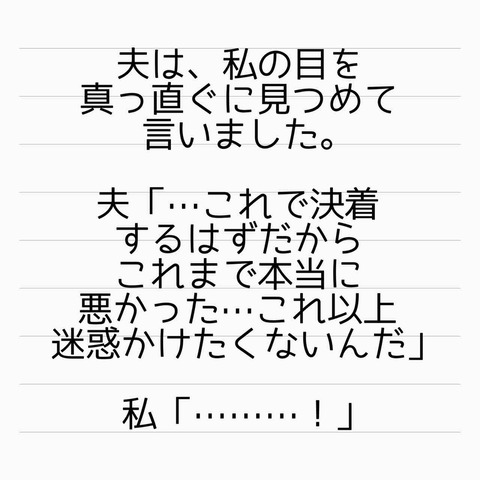 夫は、私の目を
真っ直ぐに見つめて
言いました。
夫「…これで決着
するはずだから
これまで本当に
悪かった…これ以上
迷惑かけたくないんだ」
私「………！」